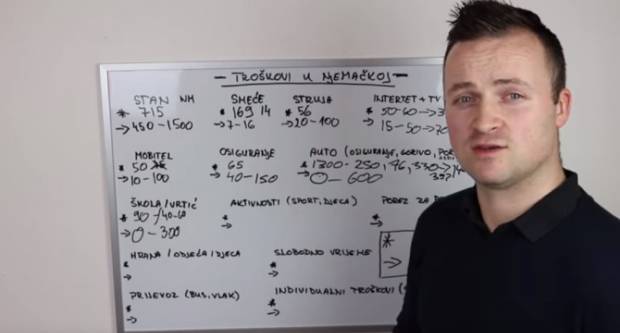 - TROŠKOVI U NJEMAČKOJ -
STAN NK
* 715
→ 450-1500
SMEĆE
* 169 14
→ 7-16
STRUJA
* 56
→ 20-100
INTERZET + TV
* 50-60 →
→ 15-50 →70
MOBITEL
* 50
→ 10-100
OSIGURANJE
* 65
→ 40-150
AUTO (OSIGURANJE, GORIVO, POR
* 1300-250, 46, 330 →
→ 0-600
ŠKOLA/VRTIĆ
* 90 / 40-60
→ 0-300
AKTIVNOSTI (SPORT, DJECA)
*
→
POREZ ZA
*
→
HRANA / ODJEĆA / DJECA
*
→
SLOBODNO VRIJEME
*
→
PRIJEVOZ (BUS, VLAK)
*
→
INDIVIDUALNI TROŠKOVI (
*
→